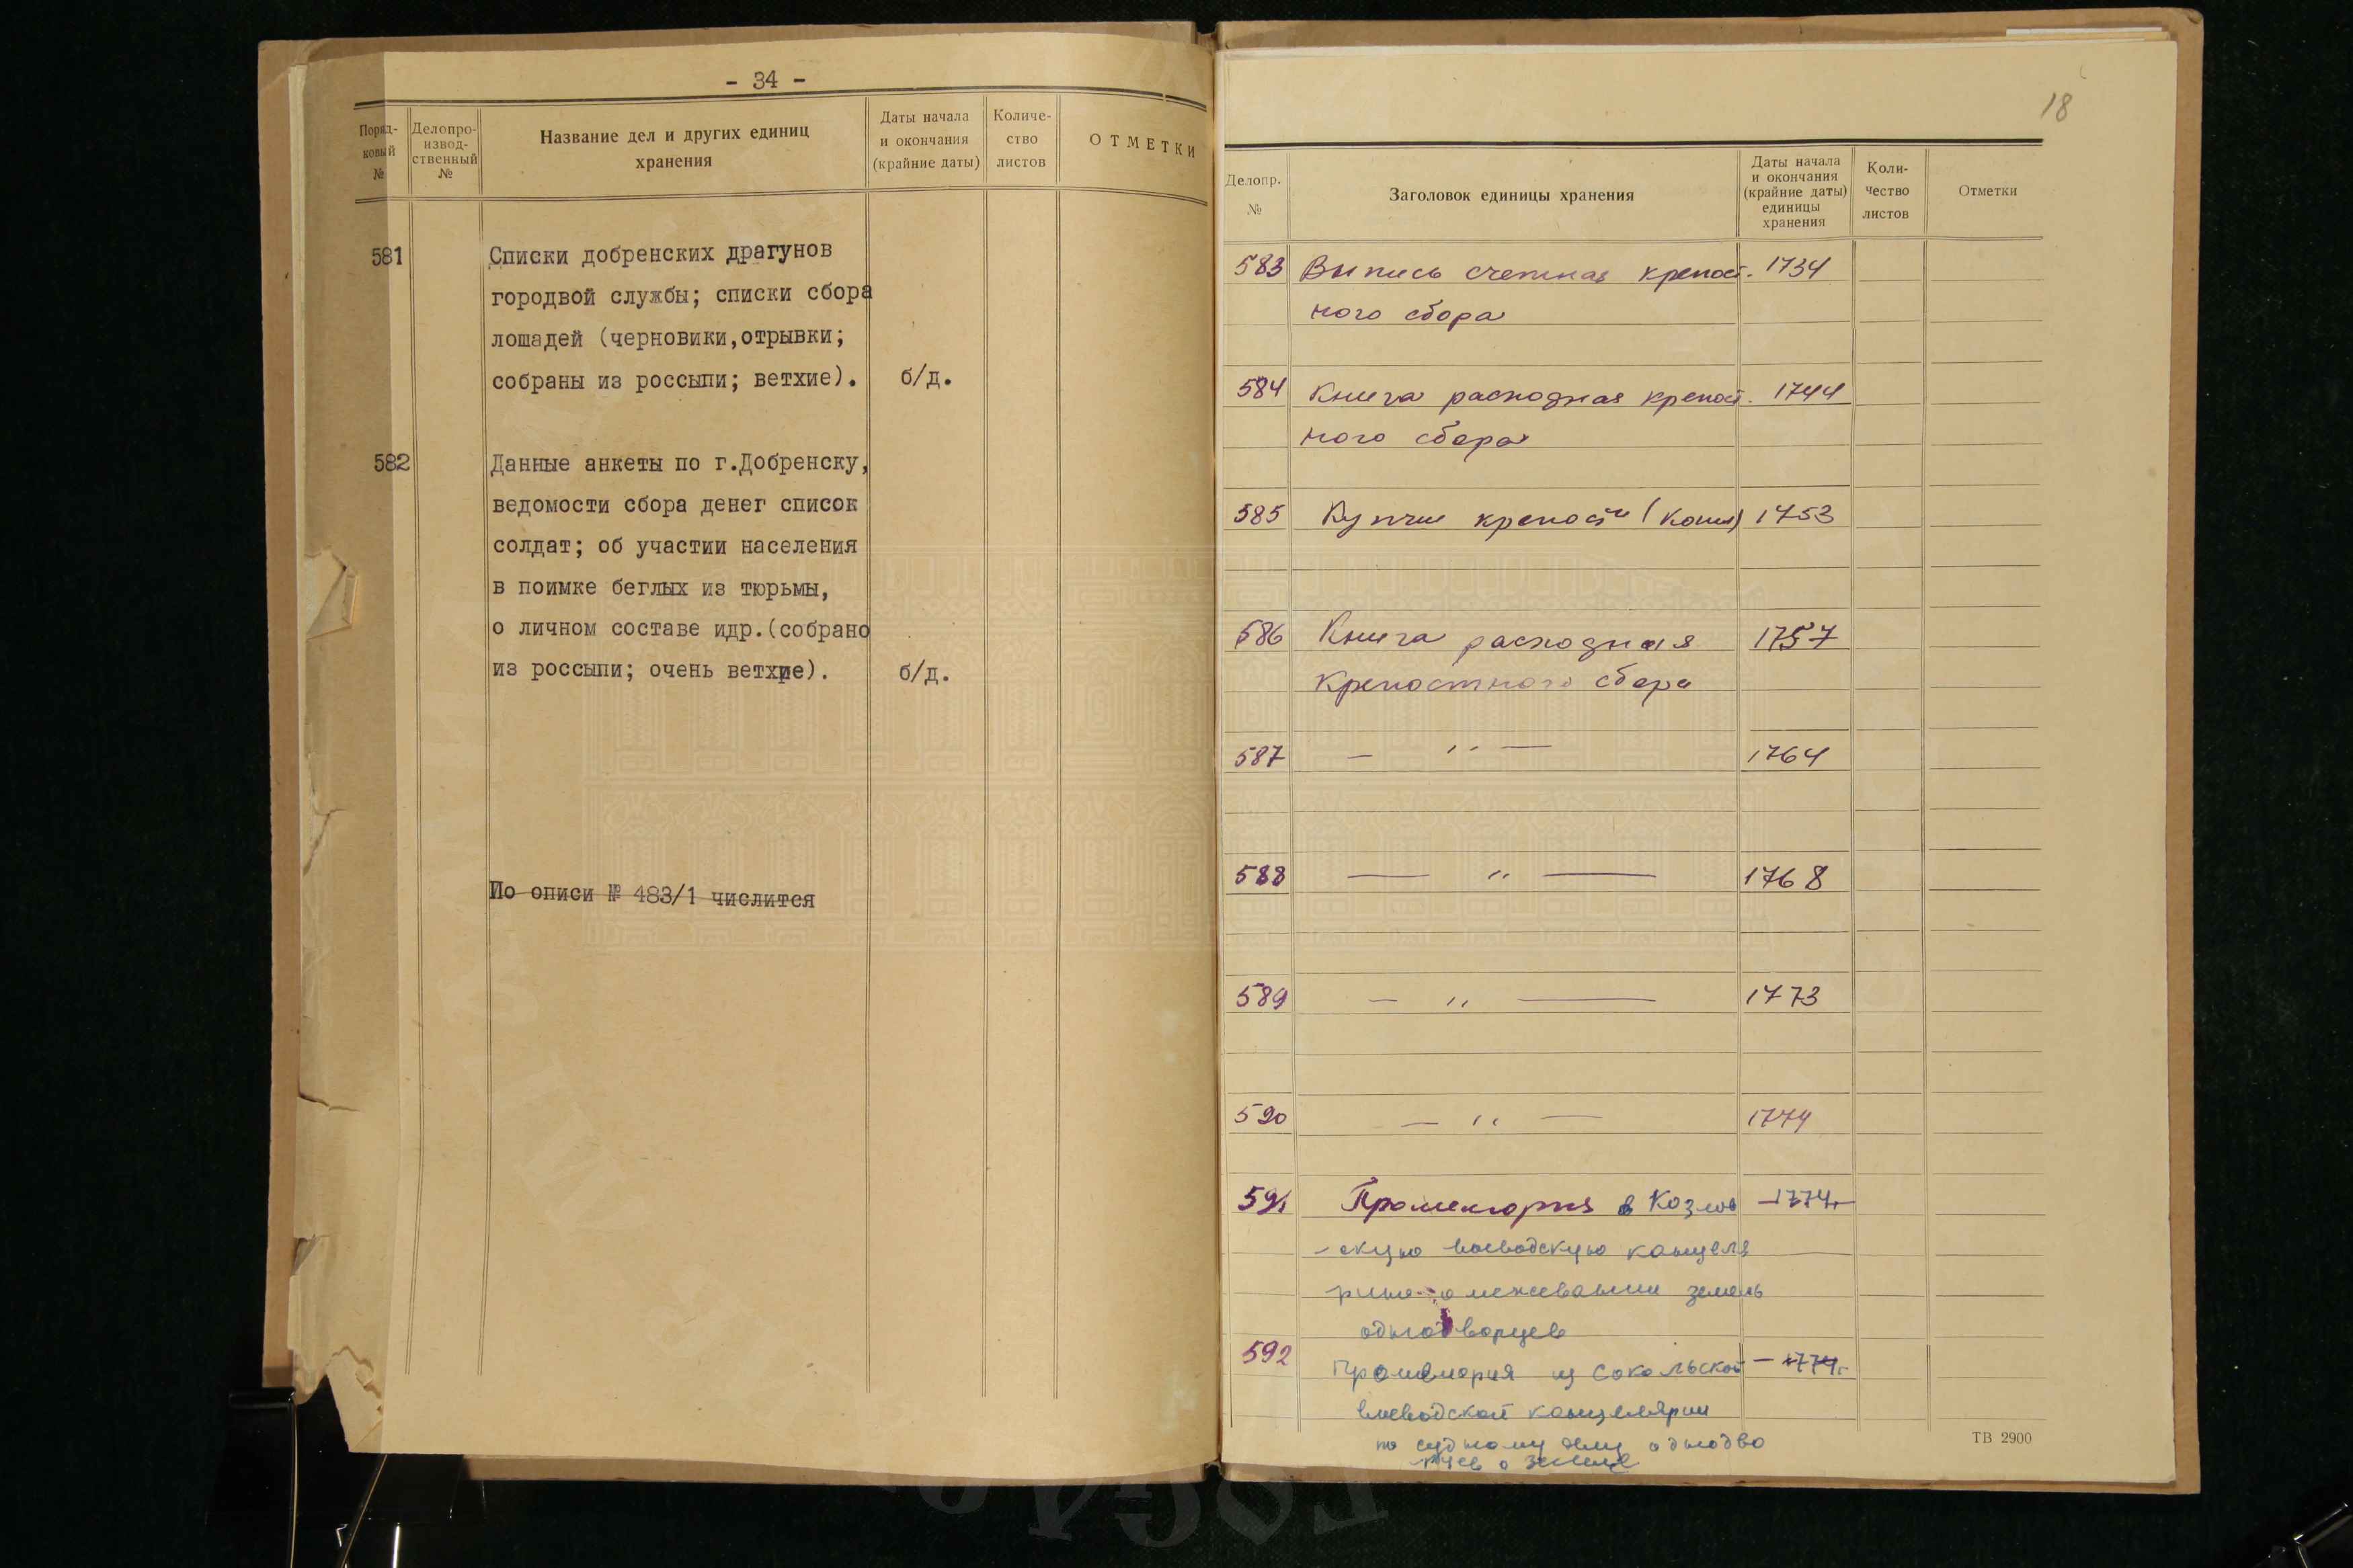 - 34 -
Поряд-
ковый
№
Делопро-
извод-
ственный
№
Название дел и других единиц
хранения
Даты начала
и окончания
(крайние даты)
Количе-
ство
листов
ОТМЕТКИ
581 Списки добренских драгунов
городвой службы; списки сбора
лошадей (черновики,отрывки;
собраны из россыпи; ветхие). б/д.
582 Данные анкеты по г.Добренску,
ведомости сбора денег список
солдат; об участии населения
в поимке беглых из тюрьмы,
о личном составе идр.(собрано
из россыпи; очень ветхие). б/д.
По описи № 483/1 числится
18
Делопр.
№
Заголовок единицы хранения
Даты начала
и окончания
(крайние даты)
единицы
хранения
Коли-
чество
листов
Отметки
583 Выпись счетная крепост- 1734
ного сбора
584 Книга расходная крепост- 1744
ного сбора
585 Купчие крепости (копии) 1753
586 Книга расходная 1757
крепостного сбора
587 — " — 1764
588 — " — 1768
589 — " — 1773
590 — " — 1774
591 Промемория в Козлов 1774г
-скую воеводскую канцеля
рию о межевании земель
однодворцев
592 Промемория из Сокольской - 1774г
воеводской канцелярии
по судному делу однодво
рцев о земле
ТВ 2900